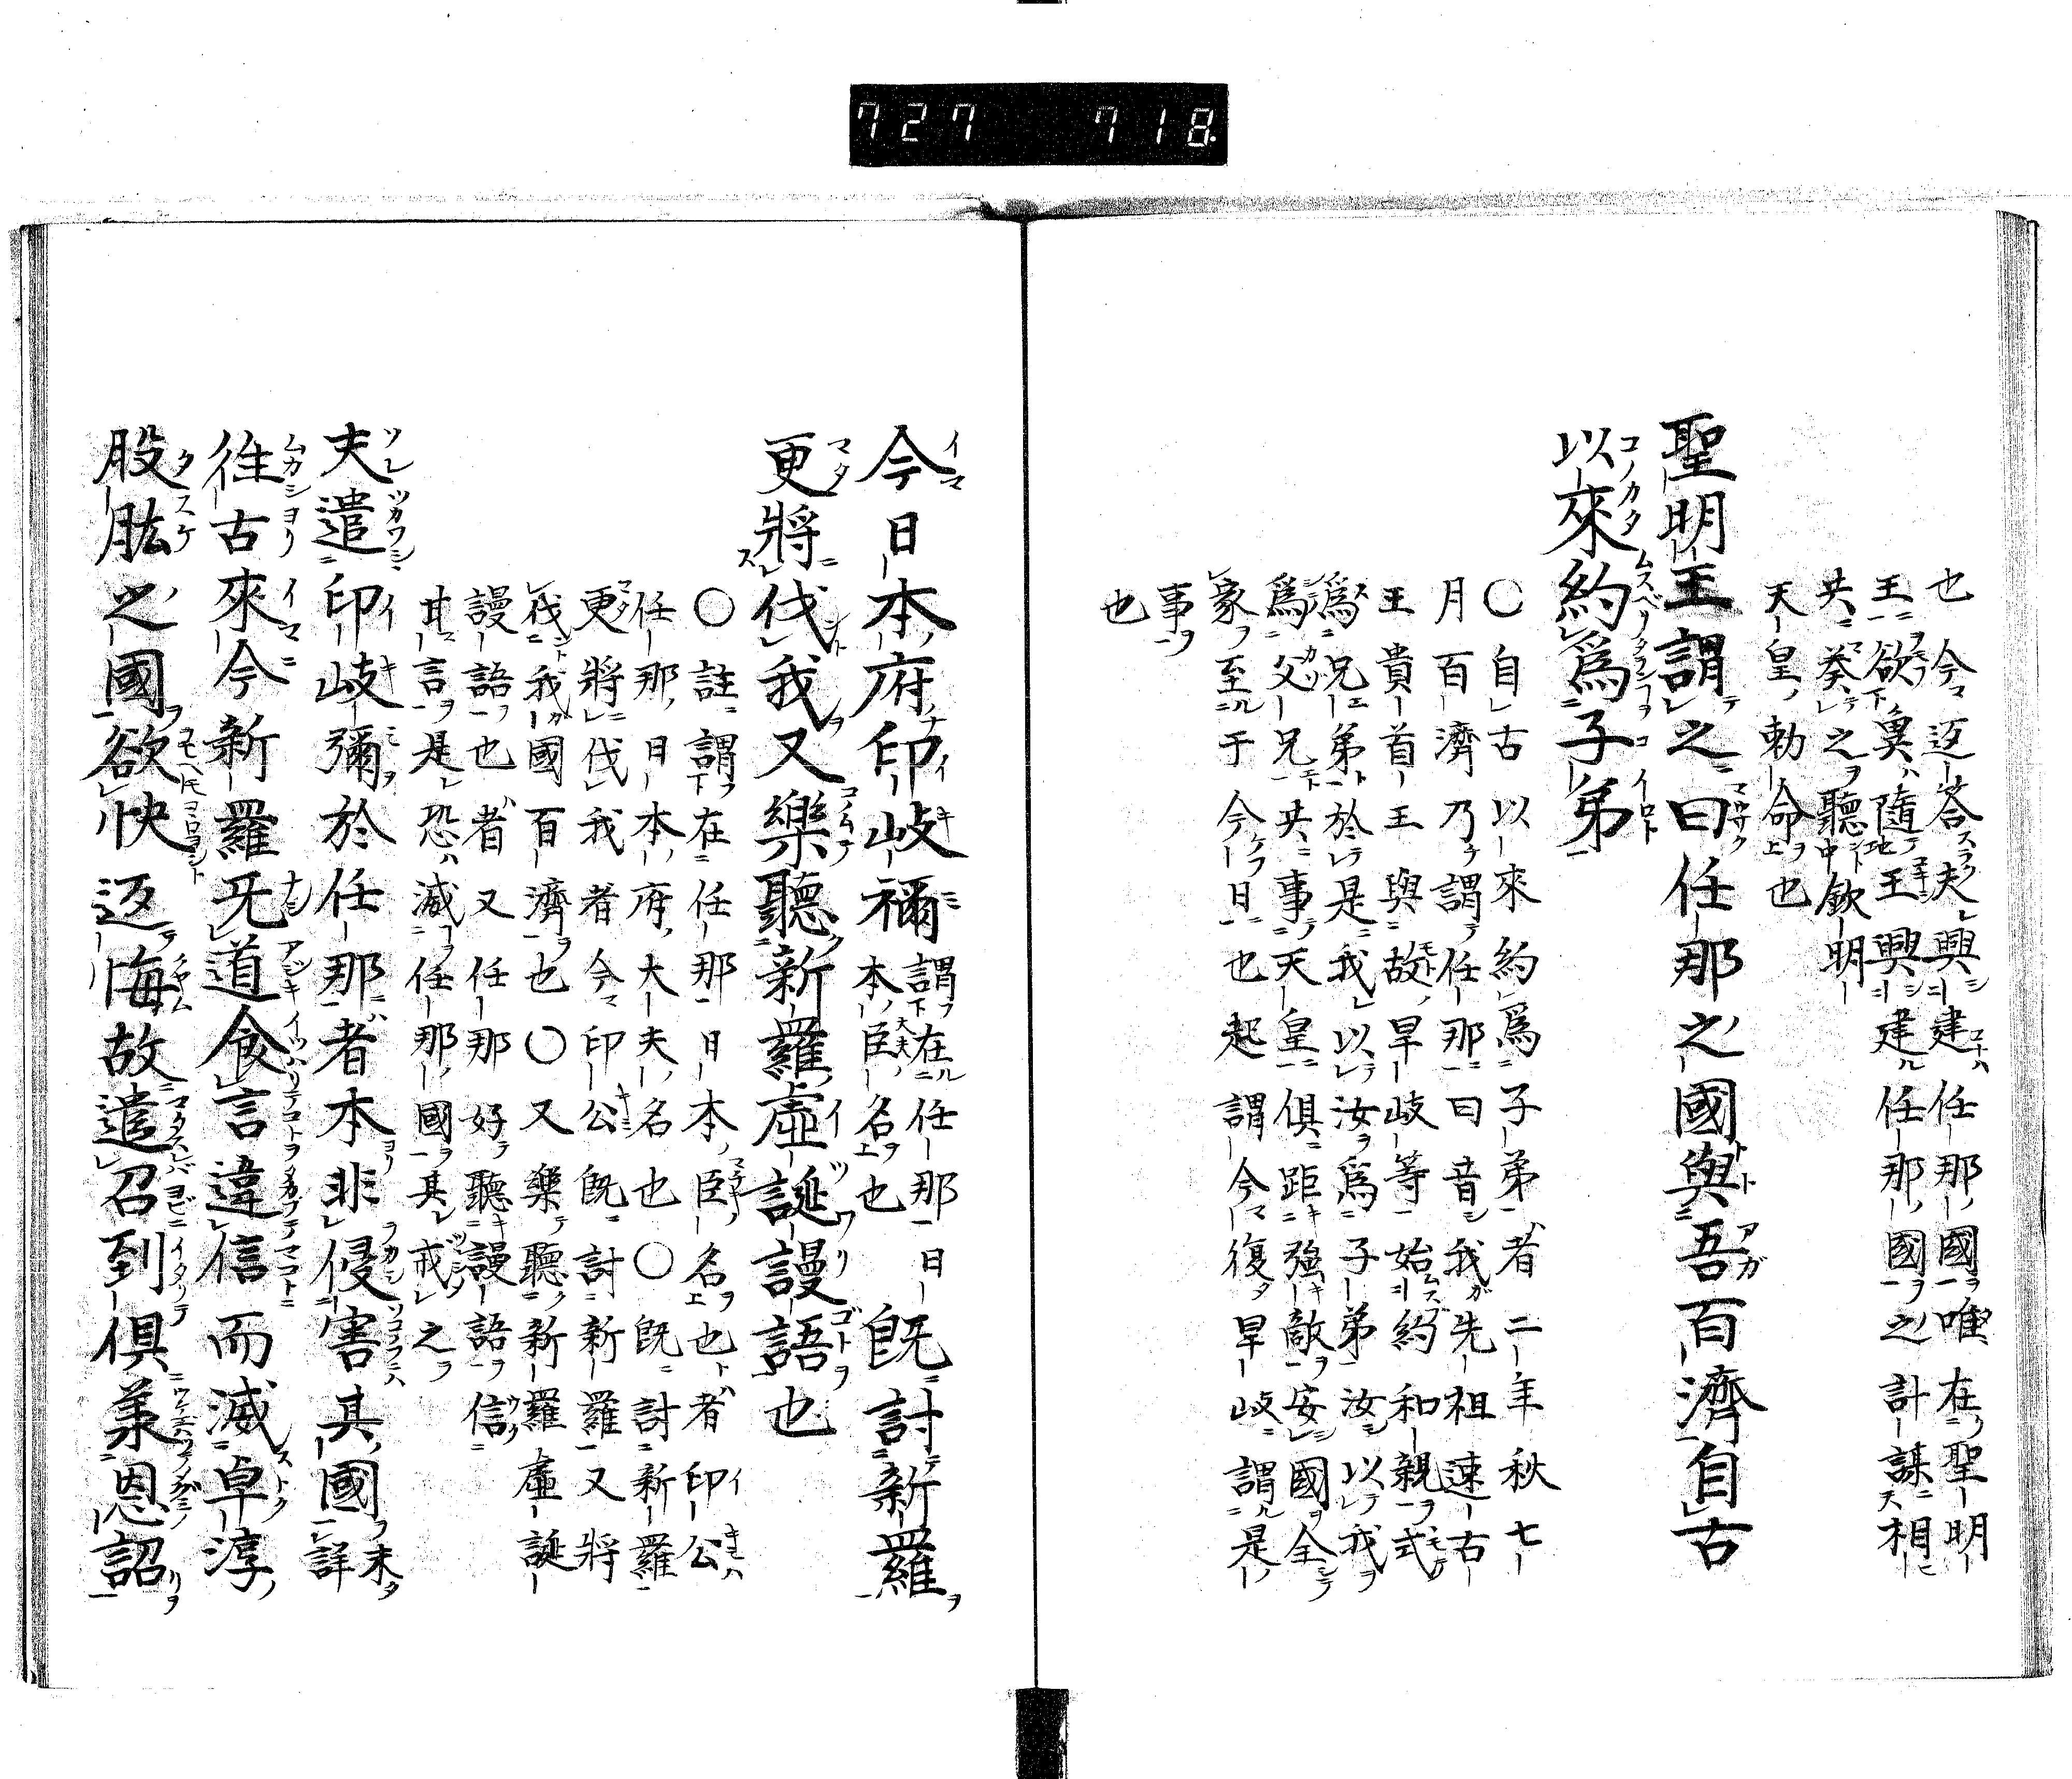 727 718
也今迈答夫興建任那國唯在聖明
王欲奠隨地王興建任那國之計謀相
共葵之聽欽明
天皇勅命也
聖明王謂之曰任那之國與吾百濟自古
以來約爲子弟
〇自古以來約爲子弟者二年秋七
月百濟乃謂任那曰昔我先祖速古
王貴首王與故旱岐等始約和親式
爲兄弟於是我以汝爲子弟汝以我
爲父兄共事天皇俱距強敵安國全
家至于今日也起謂今復旱岐謂是
事
也
今日本府印岐禰謂在任那日本臣名也旣討新羅
更將伐我又樂聽新羅虛誕謾語也
〇註謂在任那日本臣名也者印公
任那日本府大夫名也〇旣討新羅
更將伐我者今印公旣討新羅又將
伐我國百濟也〇又樂聽新羅虛誕
謾語也者又任那好聽謾語信
甘言是恐滅任那國其戒之
夫遣印岐彌於任那者本非侵害其國末詳
徃古來今新羅无道食言違信而滅卓淳
股肱之國欲快迈悔故遣召到俱羕恩詔